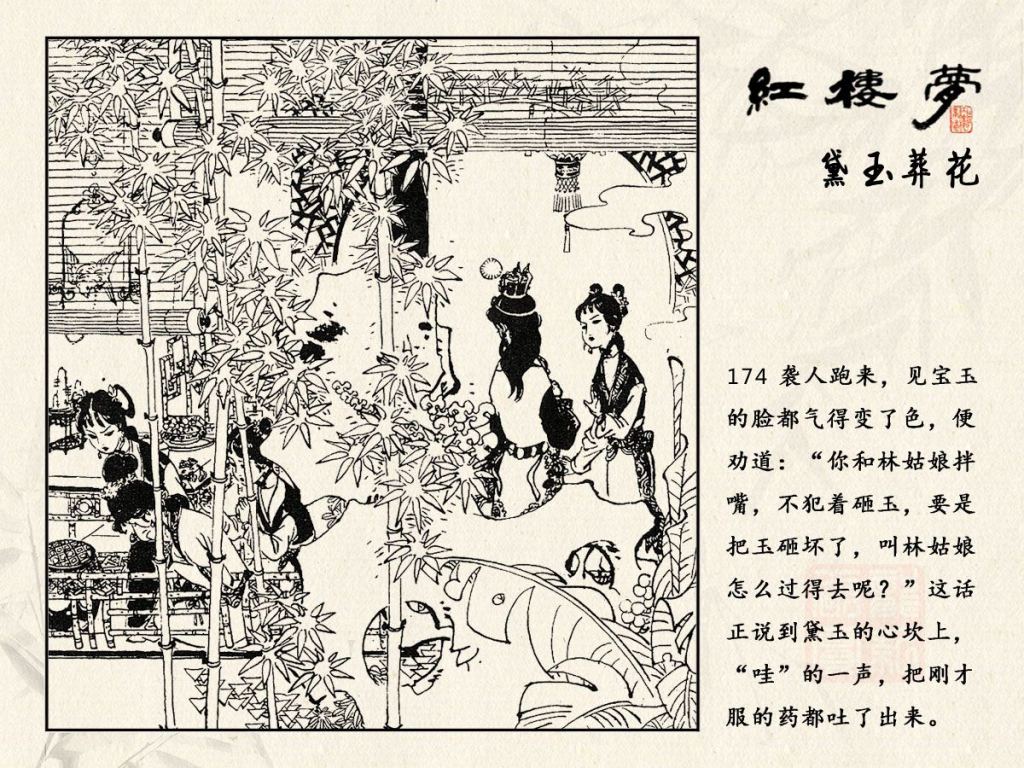 红楼梦
黛玉葬花
174 袭人跑来，见宝玉
的脸都气得变了色，便
劝道：“你和林姑娘拌
嘴，不犯着砸玉，要是
把玉砸坏了，叫林姑娘
怎么过得去呢？”这话
正说到黛玉的心坎上，
“哇”的一声，把刚才
服的药都吐了出来。